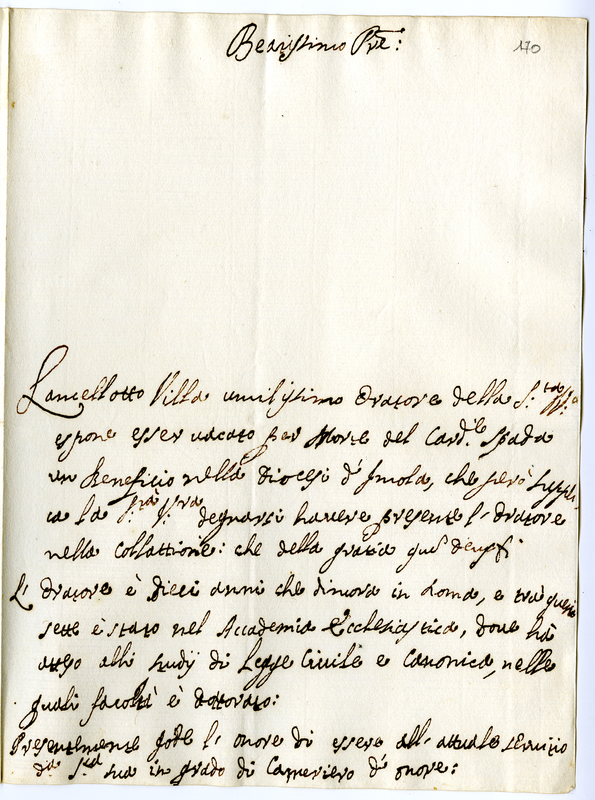 Beatissimo Pre:
170
Lancellotto Villa umilissimo Oratore della S.ta V.ra
espone esser vacato per Morte del Card.le Spada
un Beneficio nella Diocesi d'Imola, che però suppli-
ca la S.tà V.ra degnarsi havere presente l'Oratore
nella collattione: che della gratia
L'Oratore è dieci anni che dimora in Roma, e trà questi
sette è stato nel Accademia Ecclesiastica, dove hà
atteso alli studij di Legge Civile e Canonica, nelle
quali facoltà è dottorato:
Presentemente gode l'onore di essere all'attuale servizio
di S.tà sua in grado di Cameriero d'onore: